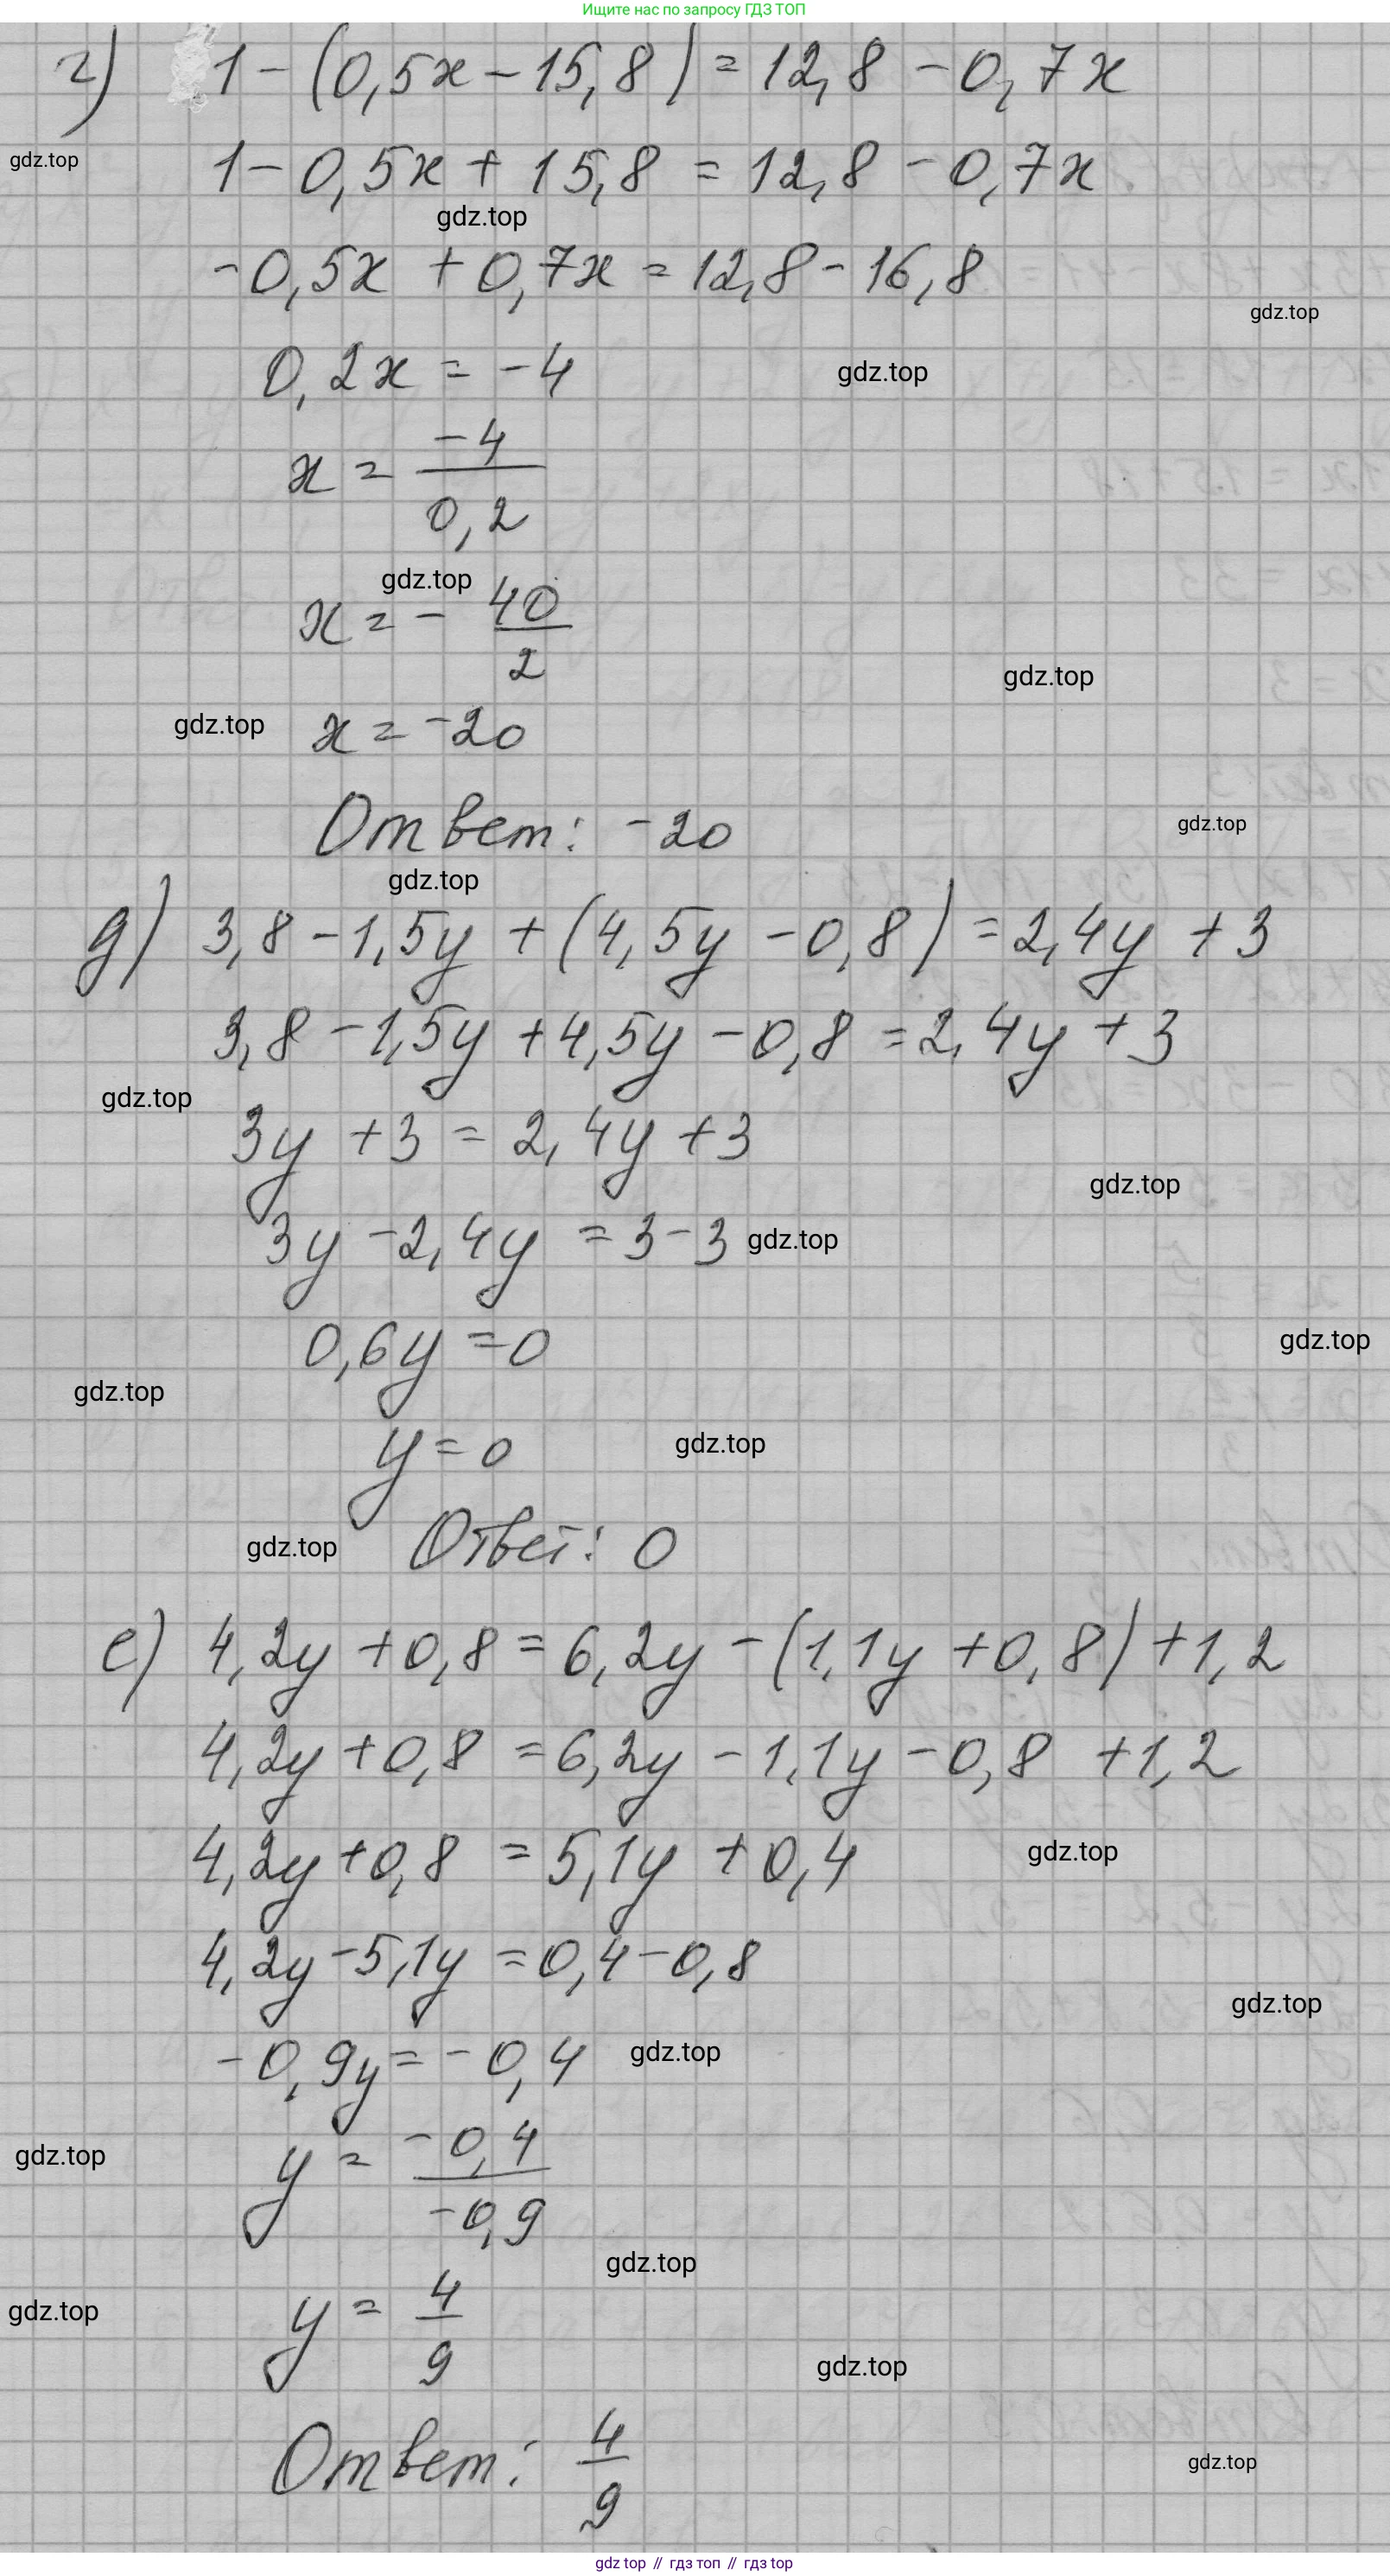 Ищите нас по запросу ГДЗ ТОП
г) 1 - (0,5x - 15,8) = 12,8 - 0,7x
gdz.top
1 - 0,5x + 15,8 = 12,8 - 0,7x
gdz.top
-0,5x + 0,7x = 12,8 - 16,8
gdz.top
0,2x = -4
gdz.top
x = -4/0,2
gdz.top
x = - 40/2
gdz.top
gdz.top
x = -20
gdz.top
Ответ: -20
gdz.top
д) 3,8 - 1,5y + (4,5y - 0,8) = 2,4y + 3
3,8 - 1,5y + 4,5y - 0,8 = 2,4y + 3
gdz.top
3y + 3 = 2,4y + 3
gdz.top
3y - 2,4y = 3 - 3
gdz.top
0,6y = 0
gdz.top
gdz.top
y = 0
gdz.top
gdz.top
Ответ: 0
е) 4,2y + 0,8 = 6,2y - (1,1y + 0,8) + 1,2
4,2y + 0,8 = 6,2y - 1,1y - 0,8 + 1,2
4,2y + 0,8 = 5,1y + 0,4
gdz.top
4,2y - 5,1y = 0,4 - 0,8
gdz.top
-0,9y = -0,4
gdz.top
gdz.top
y = -0,4/-0,9
gdz.top
gdz.top
y = 4/9
gdz.top
Ответ: 4/9
gdz.top
gdz top // гдз топ // гдз top